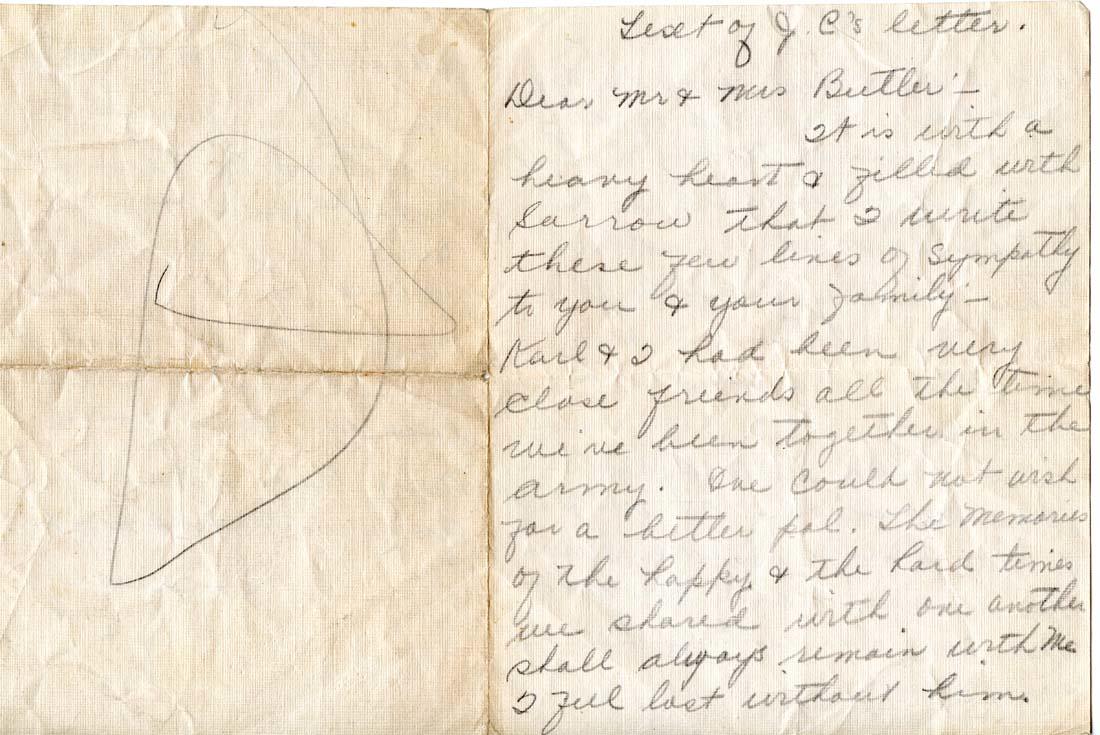 Text of J. C's letter.
Dear Mr & Mrs Butler -
It is with a
heavy heart & filled with
Sorrow that I write
these few lines of Sympathy
to you & your family -
Karl & I had been very
close friends all the time
we've been together in the
army. One could not wish
for a better pal. The Memories
of the happy & the hard times
we shared with one another
shall always remain with Me
I feel lost without him.